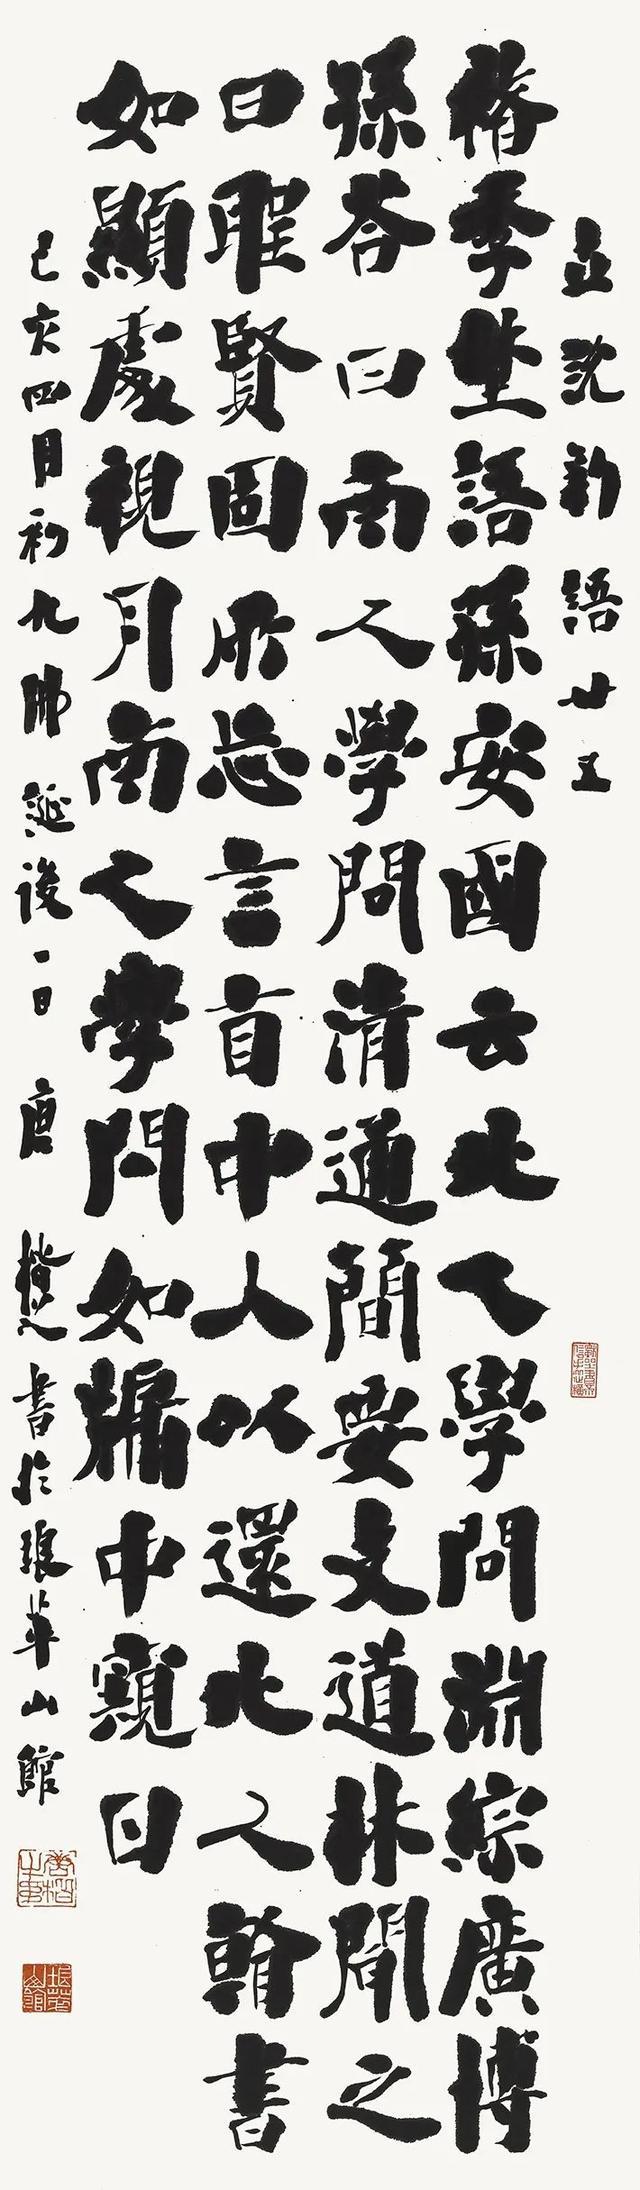 世說新語廿五
褚季埜語孫安國云北人學問淵綜廣博
孫荅曰南人學問清通簡要支道林聞之
曰聖賢固所忘言自中人以還北人看書
如顯處視月南人學問如牖中窺日
己亥四月初九佛誕後一日唐楷之書於琅華山館